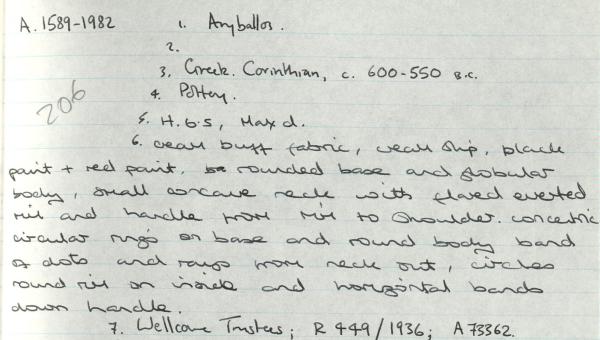 A. 1589-1982 1. Aryballos.
2.
3. Greek. Corinthian, c. 600-550 B.C.
206
4. Pottery.
5. H. 6.5, Max d.
6. cream buff fabric, cream slip, black
paint + red paint. rounded base and globular
body, small concave neck with flared everted
rim and handle from rim to shoulder. concentric
circular rings on base and round body band
of dots and rays from neck out, circles
round rim on inside and horizontal bands
down handle.
7. Wellcome Trustees; R 449/1936; A73362.